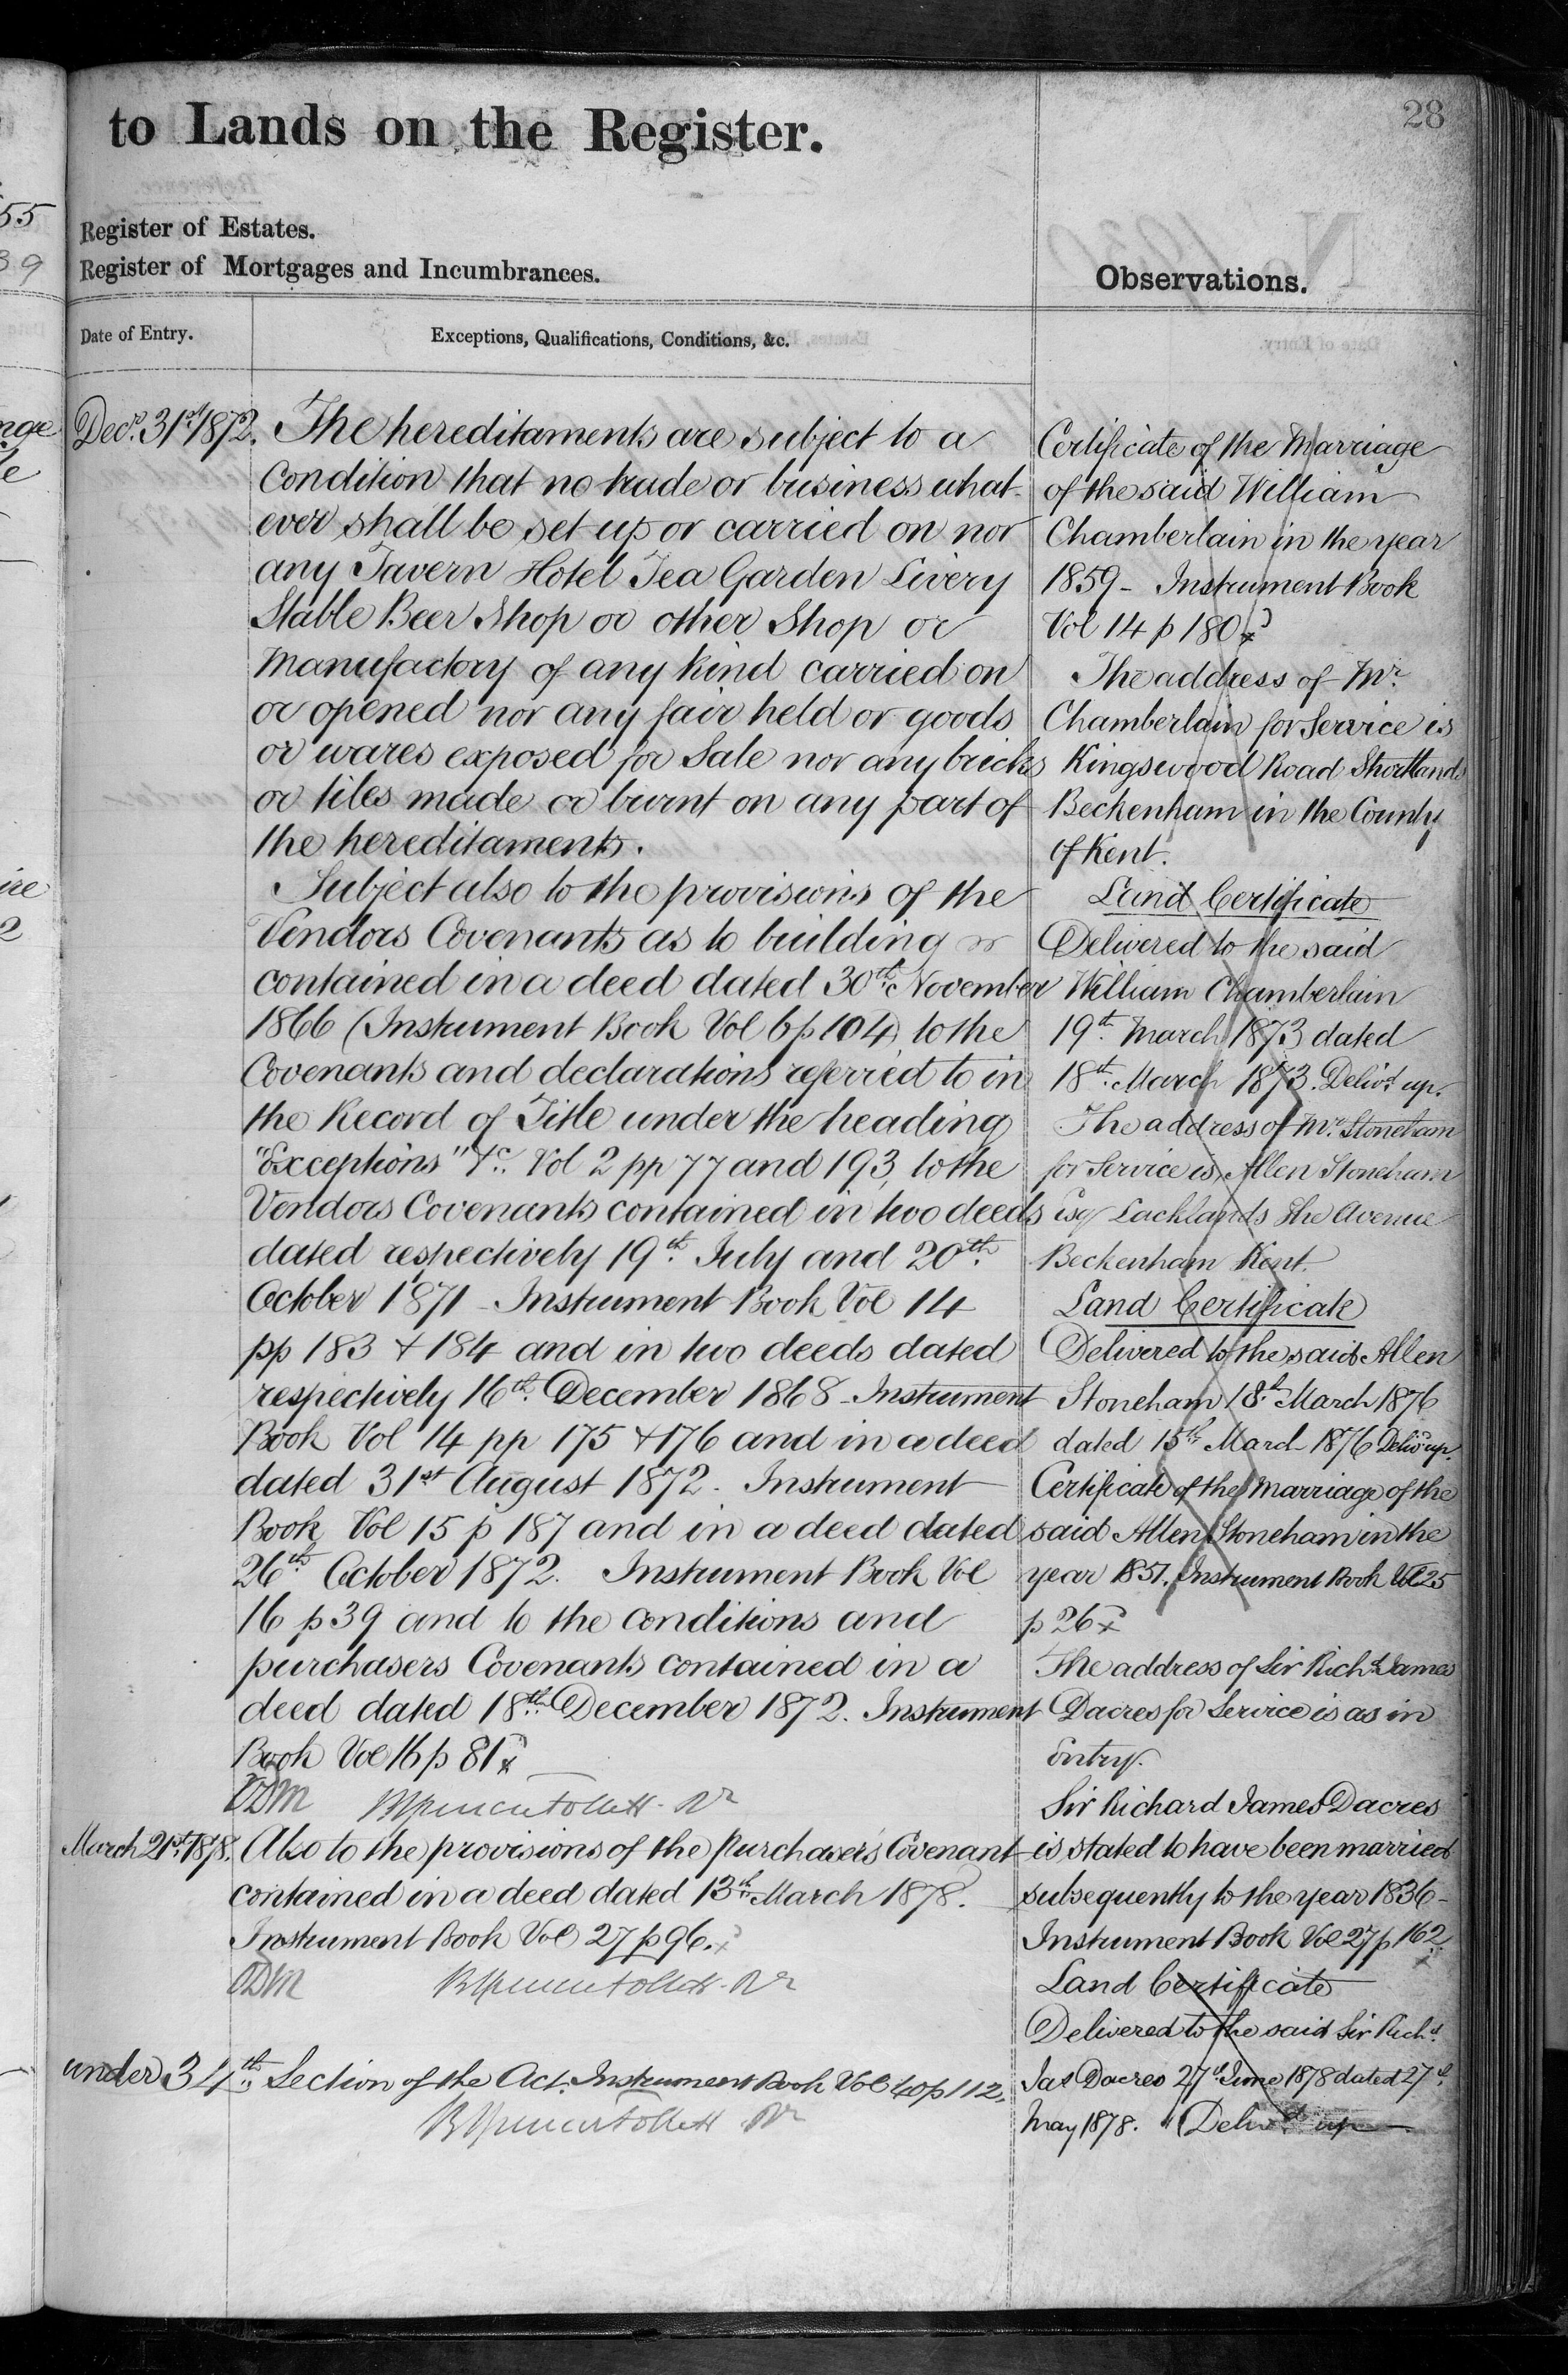 28
to Lands on the Register.
Register of Estates.
Register of Mortgages and Incumbrances.
Observations.
Date of Entry.
Exceptions, Qualifications, Conditions, &c.
Decr. 31st 1872.
The hereditaments are subject to a
Condition that no trade or business what-
ever shall be set up or carried on nor
any Tavern Hotel Tea Garden Livery
Stable Beer Shop or other Shop or
Manufactory of any kind carried on
or opened nor any fair held or goods
or wares exposed for Sale nor any bricks
or tiles made or burnt on any part of
the hereditaments.
Subject also to the provisions of the
Vendors Covenants as to building or
contained in a deed dated 30th November
1866 (Instrument Book Vol 6 p 104) to the
Covenants and declarations referred to in
the Record of Title under the heading
"Exceptions" &c. Vol 2 pp 77 and 193, to the
Vendors Covenants contained in two deeds
dated respectively 19th July and 20th
October 1871 - Instrument Book Vol 14
pp 183 & 184 and in two deeds dated
respectively 16th December 1868 - Instrument
Book Vol 14 pp 175 & 176 and in a deed
dated 31st August 1872. Instrument
Book Vol 15 p 187 and in a deed dated
26th October 1872. Instrument Book Vol
16 p 39 and to the conditions and
purchasers Covenants contained in a
deed dated 18th December 1872. Instrument
Book Vol 16 p 81
March 21st 1878.
Also to the provisions of the Purchaser's Covenant
contained in a deed dated 13th March 1878.
Instrument Book Vol 27 p 96.
under 34th Section of the Act. Instrument Book Vol 40 p 112.
Certificate of the Marriage
of the said William
Chamberlain in the year
1859 - Instrument Book
Vol 14 p 180
The address of Mr.
Chamberlain for Service is
Kingswood Road Shortlands
Beckenham in the County
of Kent.
Land Certificate
Delivered to the said
William Chamberlain
19th March 1873 dated
18th March 1873. Delivd. up.
The address of Mr. Stoneham
for Service is, Allen Stoneham
Esq Lacklands The Avenue
Beckenham Kent.
Land Certificate
Delivered to the said Allen
Stoneham 18th March 1876
dated 15th March 1876 Delivd. up.
Certificate of the Marriage of the
said Allen Stoneham in the
year 1851. Instrument Book Vol 25
p 26
The address of Sir Richd. James
Dacres for Service is as in
Entry.
Sir Richard James Dacres
is stated to have been married
subsequently to the year 1836 -
Instrument Book Vol 27 p 162
Land Certificate
Delivered to the said Sir Richd.
Jas Dacres 27th June 1878 dated 27th
May 1878. Delivd. up